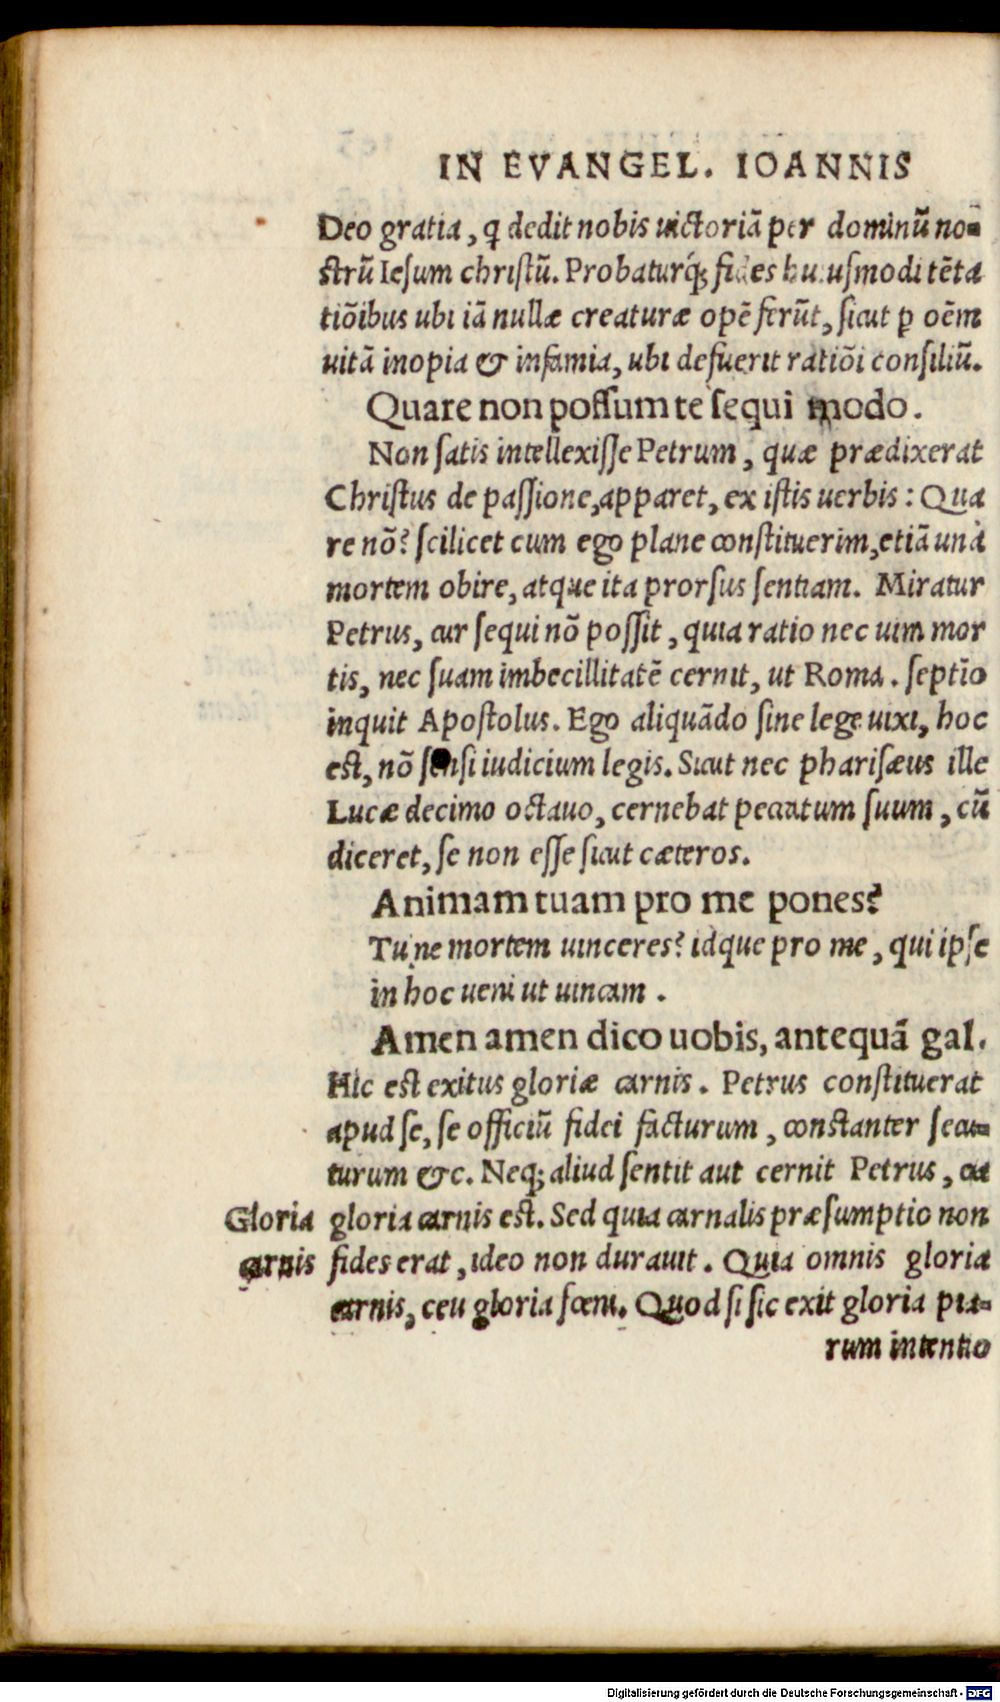 IN EVANGEL. IOANNIS
Deo gratia, ꝙ dedit nobis uictoriã per dominũ no-
ſtrũ Ieſum chriſtũ. Probaturq́; fides huiuſmodi tẽta
tiõibus ubi iã nullæ creaturæ opẽ ferũt, ſicut ꝑ oẽm
uitã inopia & infamia, ubi defuerit ratiõi conſiliũ.
Quare non poſſum te ſequi modo.
Non ſatis intellexiſſe Petrum, quæ prædixerat
Chriſtus de paſſione, apparet, ex iſtis uerbis: Qua
re nõ? ſcilicet cum ego plane conſtituerim, etiã unà
mortem obire, atque ita prorſus ſentiam. Miratur
Petrus, cur ſequi nõ poſſit, quia ratio nec uim mor
tis, nec ſuam imbecillitatẽ cernit, ut Roma. ſeptĩo
inquit Apoſtolus. Ego aliquãdo ſine lege uixi, hoc
eſt, nõ ſenſi iudicium legis. Sicut nec phariſæus ille
Lucæ decimo octauo, cernebat peccatum ſuum, cũ
diceret, ſe non eſſe ſicut cæteros.
Animam tuam pro me pones?
Tu ne mortem uinceres? idque pro me, qui ipſe
in hoc ueni ut uincam.
Amen amen dico uobis, antequã gal.
Hic eſt exitus gloriæ carnis. Petrus conſtituerat
apud ſe, ſe officiũ fidei facturum, conſtanter ſecu-
turum &c. Neq; aliud ſentit aut cernit Petrus, cui
Gloria gloria carnis eſt. Sed quia carnalis præſumptio non
carnis fides erat, ideo non durauit. Quia omnis gloria
carnis, ceu gloria fœni. Quod ſi ſic exit gloria pia-
rum intentio
Digitalisierung gefördert durch die Deutsche Forschungsgemeinschaft - DFG